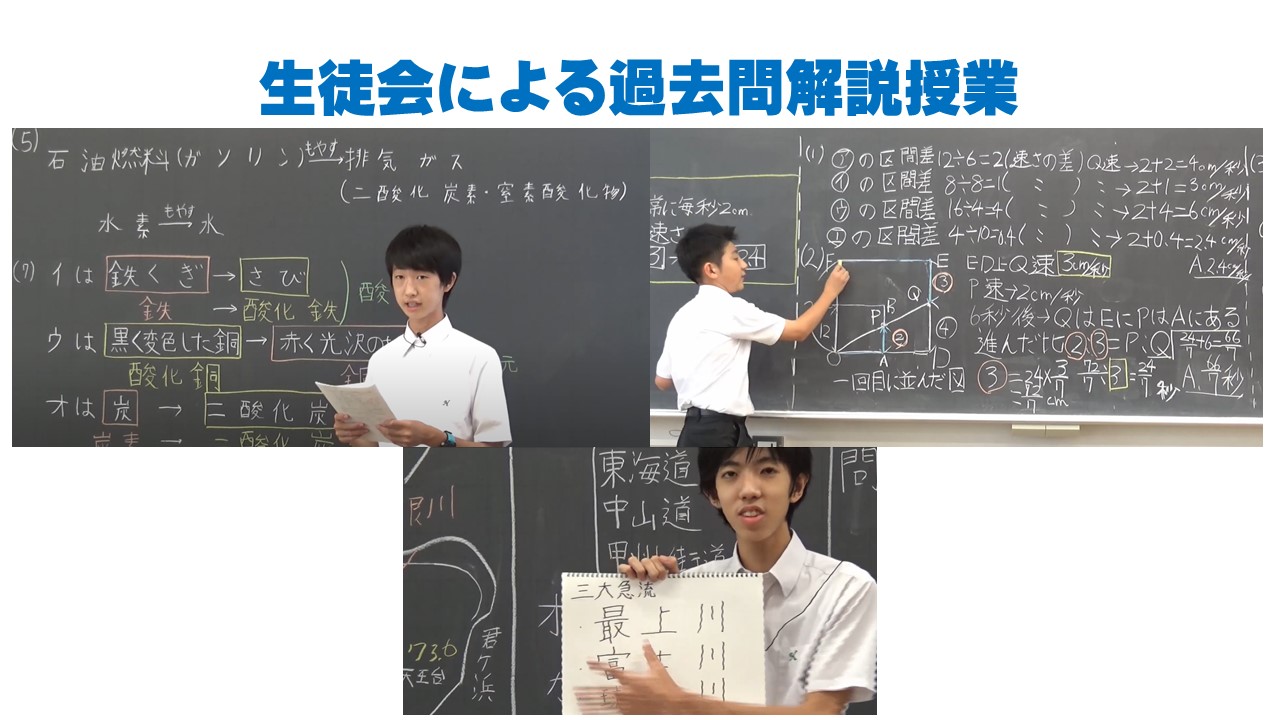 生徒会による過去問解説授業
(5)
石油燃料(ガソリン)もやす→排気ガス
(二酸化炭素・窒素酸化物)
水素もやす→水
(7) イは 鉄くぎ→さび
鉄→酸化鉄
酸
ウは 黒く変色した銅→赤く光沢の
酸化銅
元
オは 炭→二酸化炭
炭素→二酸化炭
(1) ㋐の区間差12÷6=2(速さの差) Q速→2+2=4cm/秒
㋑の区間差 8÷8=1(〃)〃→2+1=3cm/秒
㋒の区間差 16÷4=4(〃)〃→2+4=6cm/秒
㋓の区間差 4÷10=0.4(〃)〃→2+0.4=2.4cm/秒
A.2.4cm/秒
常に毎秒2cm.
速さ
24
(2) F
E
ED上Q速 3cm/秒
P速→2cm/秒
6秒後→QはEにPはAにある
進んだ比②:③=P:Q
24/7+6=66/7
③=24×3/7
72/7÷3=24/7秒
=72/7cm
A.66/7秒
Q
③
P
B
④
12
②
A
D
一回目に並んだ図
東海道
中山道
甲州街道
問
川
君ケ浜
73.6
天王台
三大急流
最上川
富士川
川